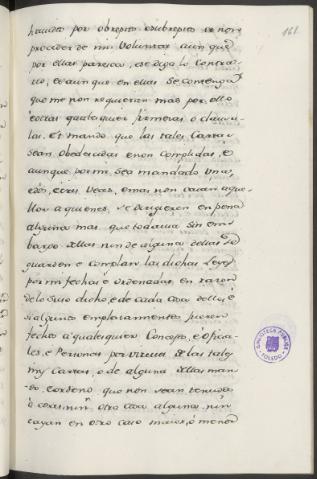 161
havidas por obrepcion, e subrepcion, e non
proceder de mi Voluntad aun que
por ellas paresca, e se diga lo contra-
rio, e aun que en ellas se contenga
que me non requieran mas por ello
e otras qualesquier firmezas o clausu-
las. Et mando que las tales Cartas
sean obedecidas e non complidas, e
aunque por mi sea mandado una,
e dos, e tres veces, e mas non caian aque-
llos a quienes se dirigieren en pena
alguna mas que todavia sin em-
bargo dellas nin de alguna dellas se
guarden e complan las dichas Leyes
por mi fechas e ordenadas en razon
de lo suso dicho, e de cada cosa dello, e
si algunos emplazamientos fueren
fechos a qualesquier Concejos, e oficia-
les, e Personas por virtud de las tales
mis Cartas, o de alguna dellas man-
do, e ordeno que non sean tenudos
o caian nin otro caso alguno, nin
cayan en otro caso maior, o menor
BIBLIOTECA PUBLICA
TOLEDO